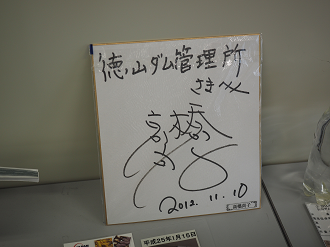 徳山ダム管理所
さまへ
高橋
2012.11.10
平成25年1月16日